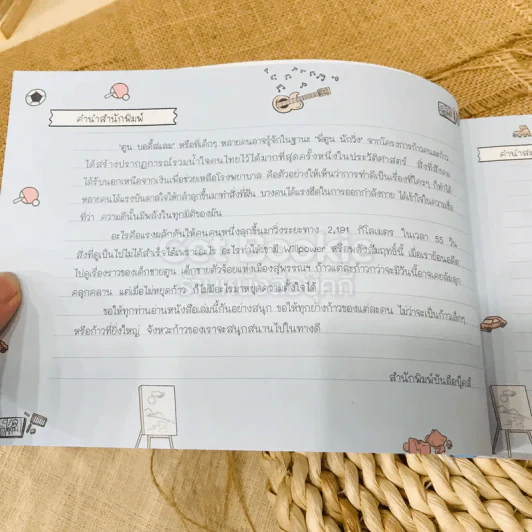 คำนำสำนักพิมพ์
'ตูน บอดี้สแลม' หรือที่เด็กๆ หลายคนอาจรู้จักในฐานะ 'พี่ตูน นักวิ่ง' จากโครงการก้าวคนละก้าว
ได้สร้างปรากฏการณ์รวมน้ำใจคนไทยไว้ได้มากที่สุดครั้งหนึ่งในประวัติศาสตร์ สิ่งที่สังคม
ได้รับนอกเหนือจากเงินเพื่อช่วยเหลือโรงพยาบาล คือตัวอย่างให้เห็นว่าการทำดีเป็นเรื่องที่ใครๆ ก็ทำได้
หลายคนได้แรงบันดาลใจให้กล้าลุกขึ้นมาทำสิ่งที่ฝัน บางคนได้แรงฮึดในการออกกำลังกาย ได้เข้าใจในความเชื่อ
ที่ว่า ความดีนั้นมีพลังในทุกมิติของมัน
อะไรคือแรงผลักดันให้คนคนหนึ่งลุกขึ้นมาวิ่งระยะทาง 2,191 กิโลเมตร ในเวลา 55 วัน
สิ่งที่ดูเป็นไปไม่ได้สำเร็จได้เพราะอะไร อะไรทำให้เขามี Willpower หรือพลังสัมฤทธิ์นี้ เมื่อเราย้อนอดีต
ไปดูเรื่องราวของเด็กชายตูน เด็กชายตัวจ้อยแห่งเมืองสุพรรณฯ ก้าวแต่ละก้าวกว่าจะมีวันนี้อาจเคยล้มลุก
คลุกคลาน แต่เมื่อไม่หยุดก้าว ก็ไม่มีอะไรมาหยุดความตั้งใจได้
ขอให้ทุกท่านอ่านหนังสือเล่มนี้กันอย่างสนุก ขอให้ทุกย่างก้าวของแต่ละคน ไม่ว่าจะเป็นก้าวเล็กๆ
หรือก้าวที่ยิ่งใหญ่ จังหวะก้าวของเราจะสนุกสนานไปในทางดี
สำนักพิมพ์บันลือบุ๊คส์